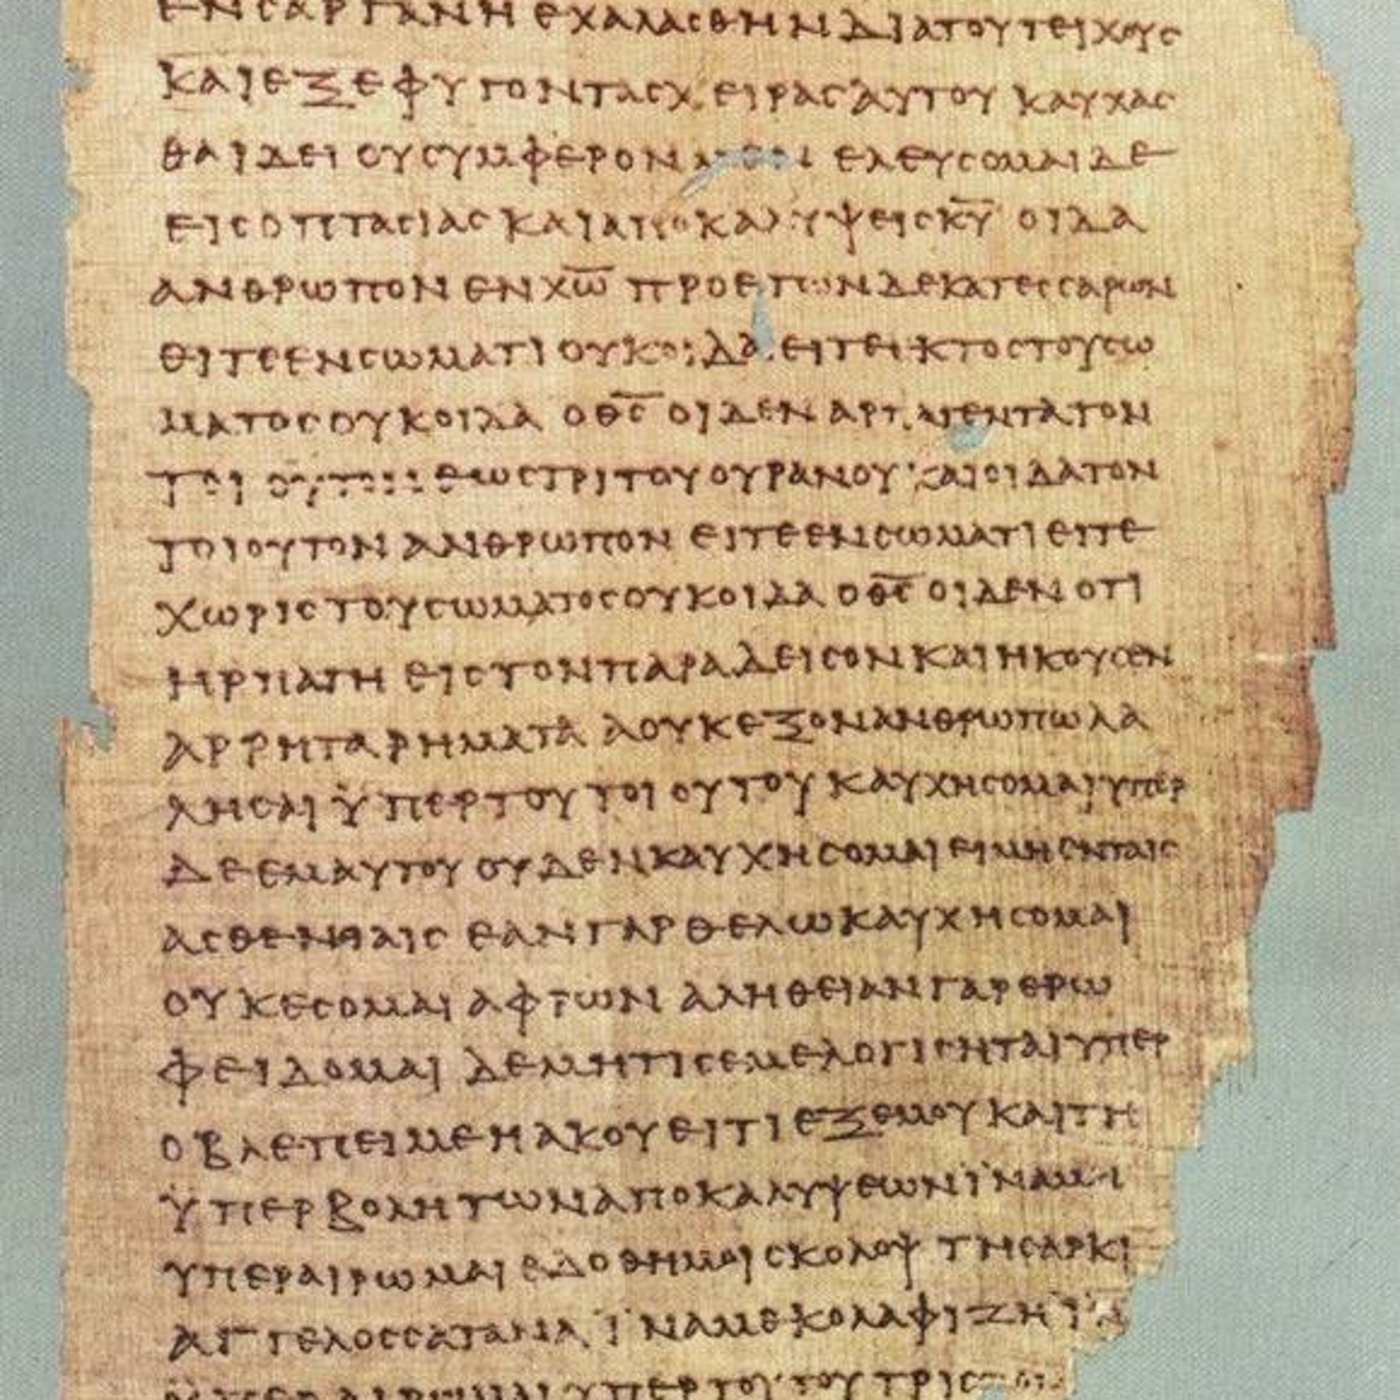 ΕΝ ϹΑΡΓΑΝΗ ΕΧΑΛΑϹΘΗΝ ΔΙΑ ΤΟΥ ΤΕΙΧΟΥϹ
ΚΑΙ ΕΞΕΦΥΓΟΝ ΤΑϹ ΧΕΙΡΑϹ ΑΥΤΟΥ ΚΑΥΧΑϹ
ΘΑΙ ΔΕΙ ΟΥ ϹΥΜΦΕΡΟΝ ΕΛΕΥϹΟΜΑΙ ΔΕ
ΕΙϹ ΟΠΤΑϹΙΑϹ ΚΑΙ ΑΠΟΚΑΛΥΨΕΙϹ Κ̅Υ̅ ΟΙΔΑ
ΑΝΘΡΩΠΟΝ ΕΝ Χ̅Ω̅ ΠΡΟ ΕΤΩΝ ΔΕΚΑΤΕϹϹΑΡΩΝ
ΕΙΤΕ ΕΝ ϹΩΜΑΤΙ ΟΥΚ ΟΙΔΑ ΕΙΤΕ ΕΚΤΟϹ ΤΟΥ ϹΩ
ΜΑΤΟϹ ΟΥΚ ΟΙΔΑ Ο Θ̅Ϲ̅ ΟΙΔΕΝ ΑΡΠΑΓΕΝΤΑ ΤΟΝ
ΤΟΙΟΥΤΟΝ ΕΩϹ ΤΡΙΤΟΥ ΟΥΡΑΝΟΥ ΚΑΙ ΟΙΔΑ ΤΟΝ
ΤΟΙΟΥΤΟΝ ΑΝΘΡΩΠΟΝ ΕΙΤΕ ΕΝ ϹΩΜΑΤΙ ΕΙΤΕ
ΧΩΡΙϹ ΤΟΥ ϹΩΜΑΤΟϹ ΟΥΚ ΟΙΔΑ Ο Θ̅Ϲ̅ ΟΙΔΕΝ ΟΤΙ
ΗΡΠΑΓΗ ΕΙϹ ΤΟΝ ΠΑΡΑΔΕΙϹΟΝ ΚΑΙ ΗΚΟΥϹΕΝ
ΑΡΡΗΤΑ ΡΗΜΑΤΑ Α ΟΥΚ ΕΞΟΝ ΑΝΘΡΩΠΩ ΛΑ
ΛΗϹΑΙ ΫΠΕΡ ΤΟΥ ΤΟΙΟΥΤΟΥ ΚΑΥΧΗϹΟΜΑΙ ΥΠΕΡ
ΔΕ ΕΜΑΥΤΟΥ ΟΥΔΕΝ ΚΑΥΧΗϹΟΜΑΙ ΕΙ ΜΗ ΕΝ ΤΑΙϹ
ΑϹΘΕΝΕΙΑΙϹ ΕΑΝ ΓΑΡ ΘΕΛΩ ΚΑΥΧΗϹΟΜΑΙ
ΟΥΚ ΕϹΟΜΑΙ ΑΦΡΩΝ ΑΛΗΘΕΙΑΝ ΓΑΡ ΕΡΩ
ΦΕΙΔΟΜΑΙ ΔΕ ΜΗ ΤΙϹ ΕΜΕ ΛΟΓΙϹΗΤΑΙ ΥΠΕΡ
Ο ΒΛΕΠΕΙ ΜΕ Η ΑΚΟΥΕΙ ΤΙ ΕΞ ΕΜΟΥ ΚΑΙ ΤΗ
ΫΠΕΡΒΟΛΗ ΤΩΝ ΑΠΟΚΑΛΥΨΕΩΝ ΪΝΑ ΜΗ
ΥΠΕΡΑΙΡΩΜΑΙ ΕΔΟΘΗ ΜΟΙ ϹΚΟΛΟΨ ΤΗ ϹΑΡΚΙ
ΑΓΓΕΛΟϹ ϹΑΤΑΝΑ ΪΝΑ ΜΕ ΚΟΛΑΦΙΖΗ ΪΝΑ
ΥΠΕΡΑΙΡΩΜΑΙ ΥΠΕΡ ΤΟΥΤΟΥ ΤΡΙϹ